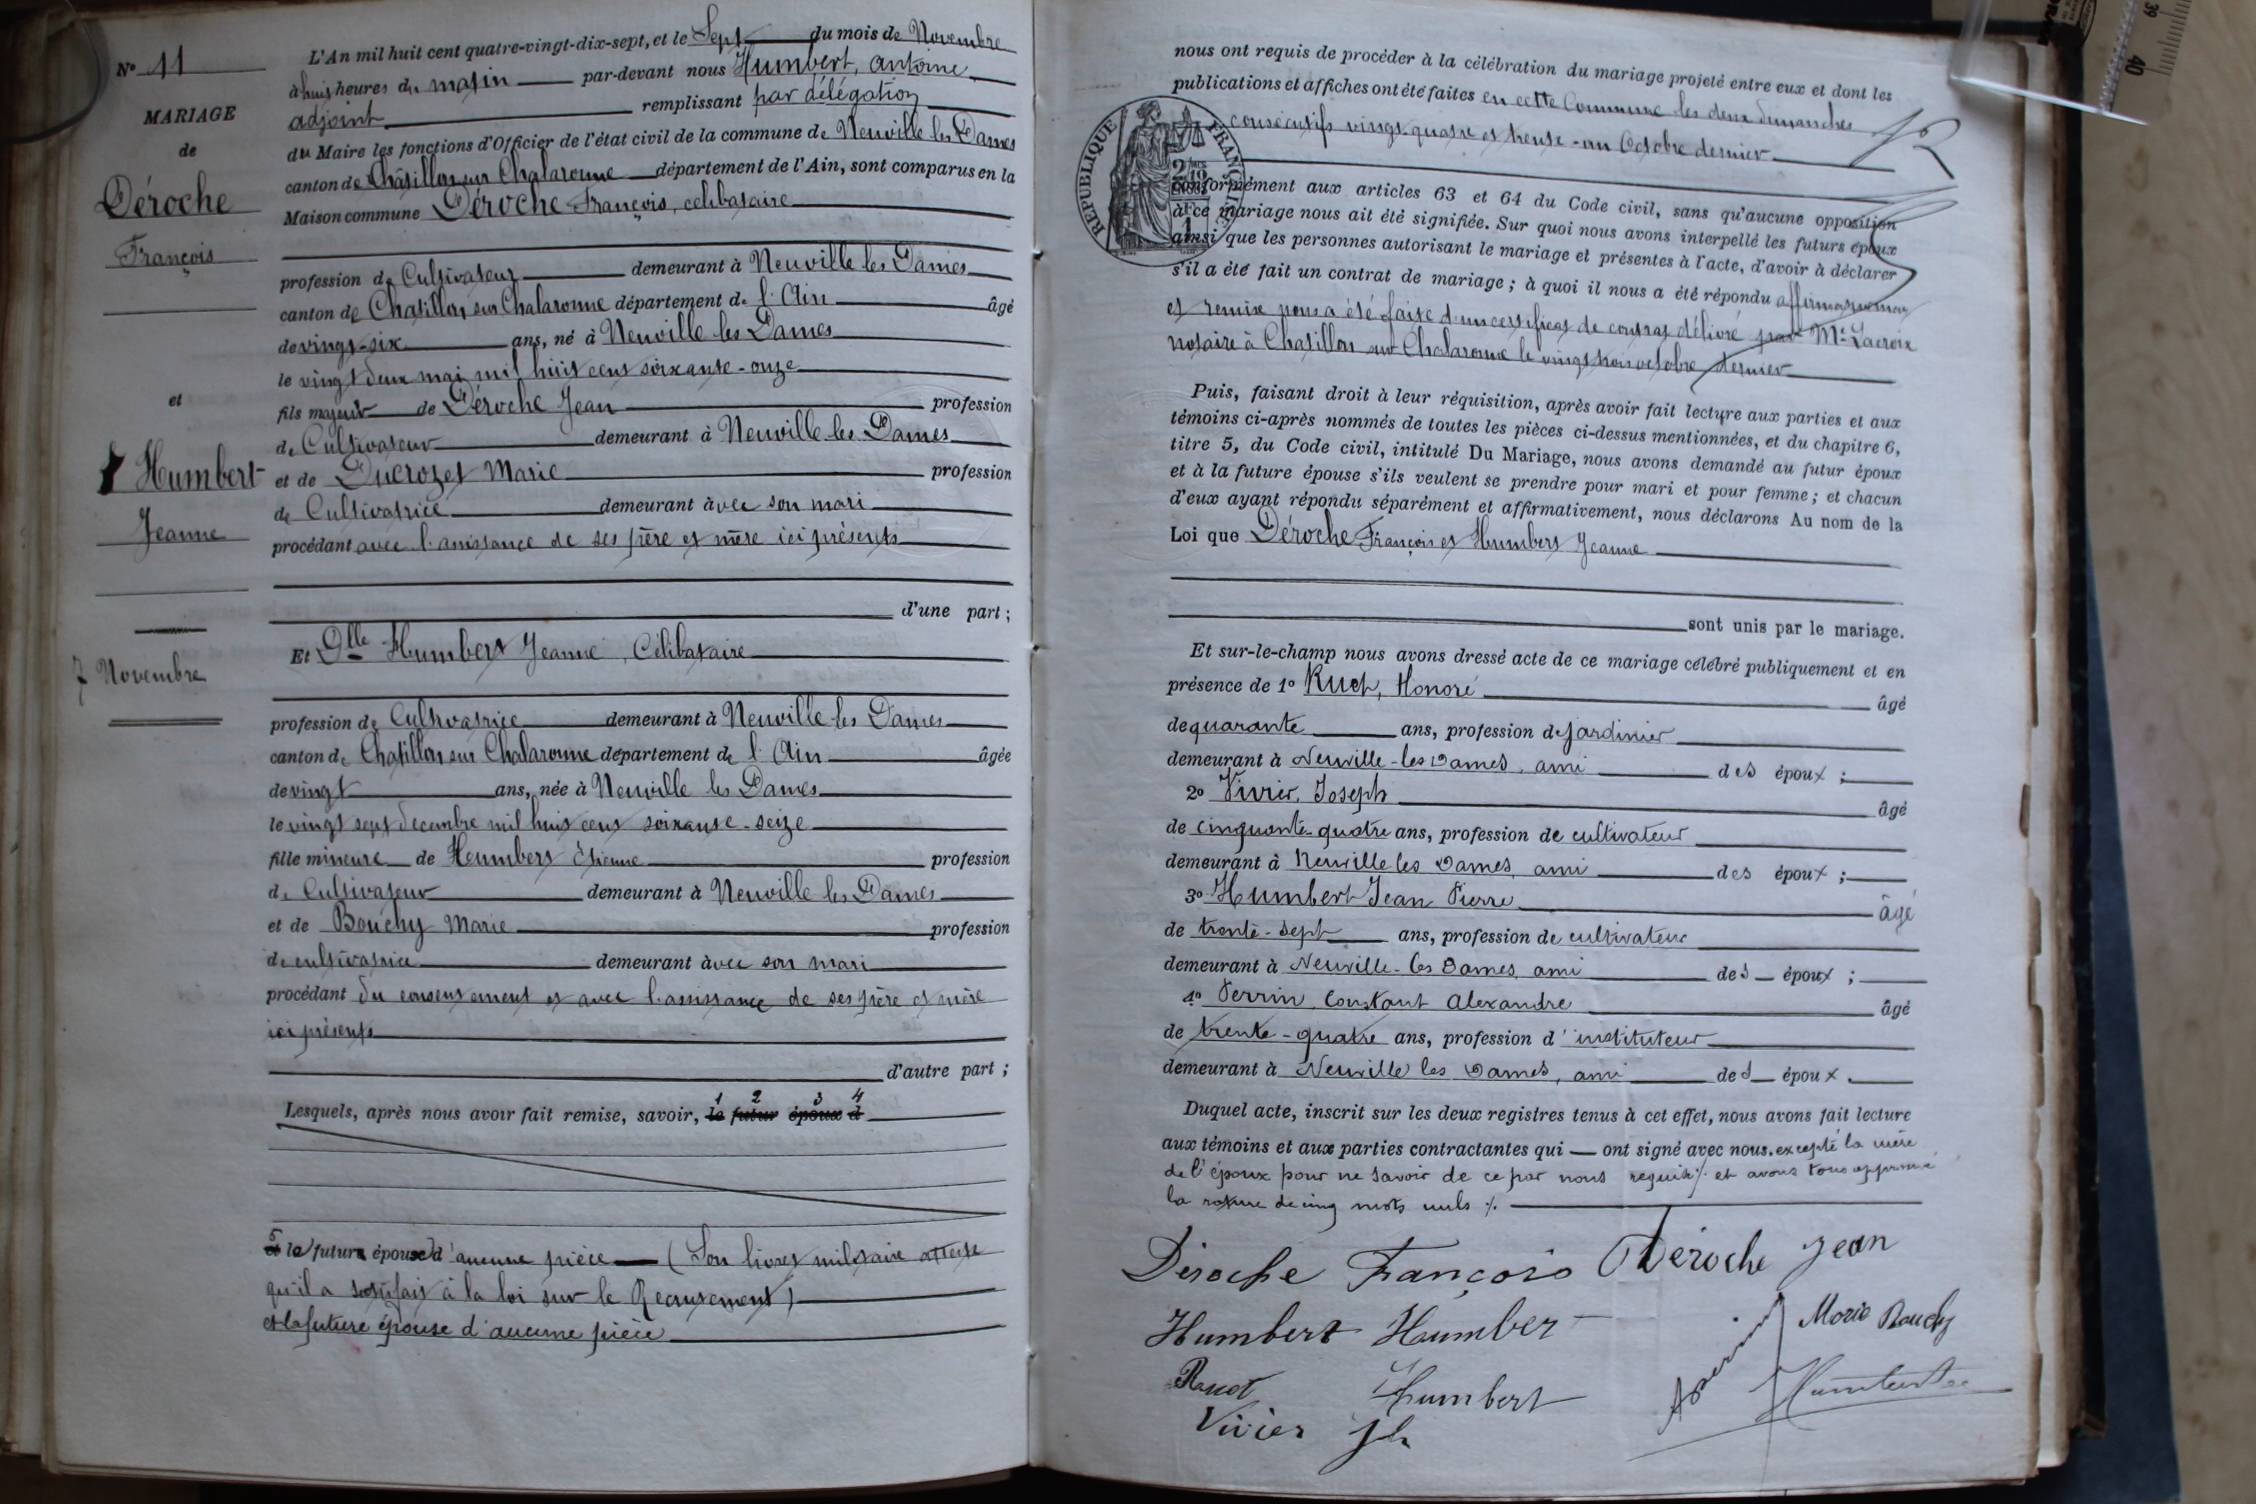 N° 11
MARIAGE
de
Déroche
François
et
Humbert
Jeanne
7 Novembre
L'An mil huit cent quatre-vingt-dix-sept, et le Sept du mois de Novembre
à huit heures du matin par-devant nous Humbert, antoine,
adjoint remplissant par délégation
du Maire les fonctions d'Officier de l'état civil de la commune de Neuville les Dames
canton de Châtillon sur Chalaronne département de l'Ain, sont comparus en la
Maison commune Déroche François, célibataire
profession de Cultivateur demeurant à Neuville les Dames
canton de Chatillon sur Chalaronne département de l'Ain âgé
de vingt-six ans, né à Neuville les Dames
le vingt deux mai mil huit cent soixante-onze
fils majeur de Déroche Jean profession
de Cultivateur demeurant à Neuville les Dames
et de Ducrozet Marie profession
de Cultivatrice demeurant avec son mari
procédant avec l'assistance de ses père et mère ici présents
d'une part ;
Et Dlle Humbert Jeanne, Célibataire
profession de Cultivatrice demeurant à Neuville les Dames
canton de Chatillon sur Chalaronne département de l'Ain âgée
de vingt ans, née à Neuville les Dames
le vingt sept decembre mil huit cent soixante-seize
fille mineure de Humbert Étienne profession
de Cultivateur demeurant à Neuville les Dames
et de Bouchy Marie profession
de cultivatrice demeurant avec son mari
procédant du consentement et avec l'assistance de ses père et mère
ici présents
d'autre part ;
1 2 3 4
Lesquels, après nous avoir fait remise, savoir, le futur époux d
5
et le futur époux d'aucune pièce (Son livret militaire atteste
qu'il a satisfait à la loi sur le Recrutement)
et la future épouse d'aucune pièce
nous ont requis de procéder à la célébration du mariage projeté entre eux et dont les
publications et affiches ont été faites en cette Commune les deux dimanches
consécutifs vingt-quatre et trente-un Octobre dernier
RÉPUBLIQUE FRANÇAISE
conformément aux articles 63 et 64 du Code civil, sans qu'aucune opposition
à ce mariage nous ait été signifiée. Sur quoi nous avons interpellé les futurs époux
ainsi que les personnes autorisant le mariage et présentes à l'acte, d'avoir à déclarer
s'il a été fait un contrat de mariage ; à quoi il nous a été répondu affirmativement
et remise nous a été faite d'un certificat de contrat délivré par Me Lacroix
notaire à Chatillon sur Chalaronne le vingt trois octobre dernier
Puis, faisant droit à leur réquisition, après avoir fait lecture aux parties et aux
témoins ci-après nommés de toutes les pièces ci-dessus mentionnées, et du chapitre 6,
titre 5, du Code civil, intitulé Du Mariage, nous avons demandé au futur époux
et à la future épouse s'ils veulent se prendre pour mari et pour femme ; et chacun
d'eux ayant répondu séparément et affirmativement, nous déclarons Au nom de la
Loi que Déroche François et Humbert Jeanne
sont unis par le mariage.
Et sur-le-champ nous avons dressé acte de ce mariage célébré publiquement et en
présence de 1° Ruet, Honoré âgé
de quarante ans, profession de jardinier
demeurant à Neuville-les Dames, ami des époux ;
2° Vivier, Joseph âgé
de cinquante-quatre ans, profession de cultivateur
demeurant à Neuville les Dames, ami des époux ;
3° Humbert Jean Pierre âgé
de trente-sept ans, profession de cultivateur
demeurant à Neuville-les Dames, ami des époux ;
4° Perrin, Constant Alexandre âgé
de trente-quatre ans, profession d'instituteur
demeurant à Neuville les Dames, ami des époux.
Duquel acte, inscrit sur les deux registres tenus à cet effet, nous avons fait lecture
aux témoins et aux parties contractantes qui ont signé avec nous. excepté la mère
de l'époux pour ne savoir de ce par nous requise ./. et avons tous approuvé
la rature de cinq mots nuls ./.
Déroche François Déroche Jean
Humbert Humbert Marie Bouchy
Ruet Humbert
Vivier Jh